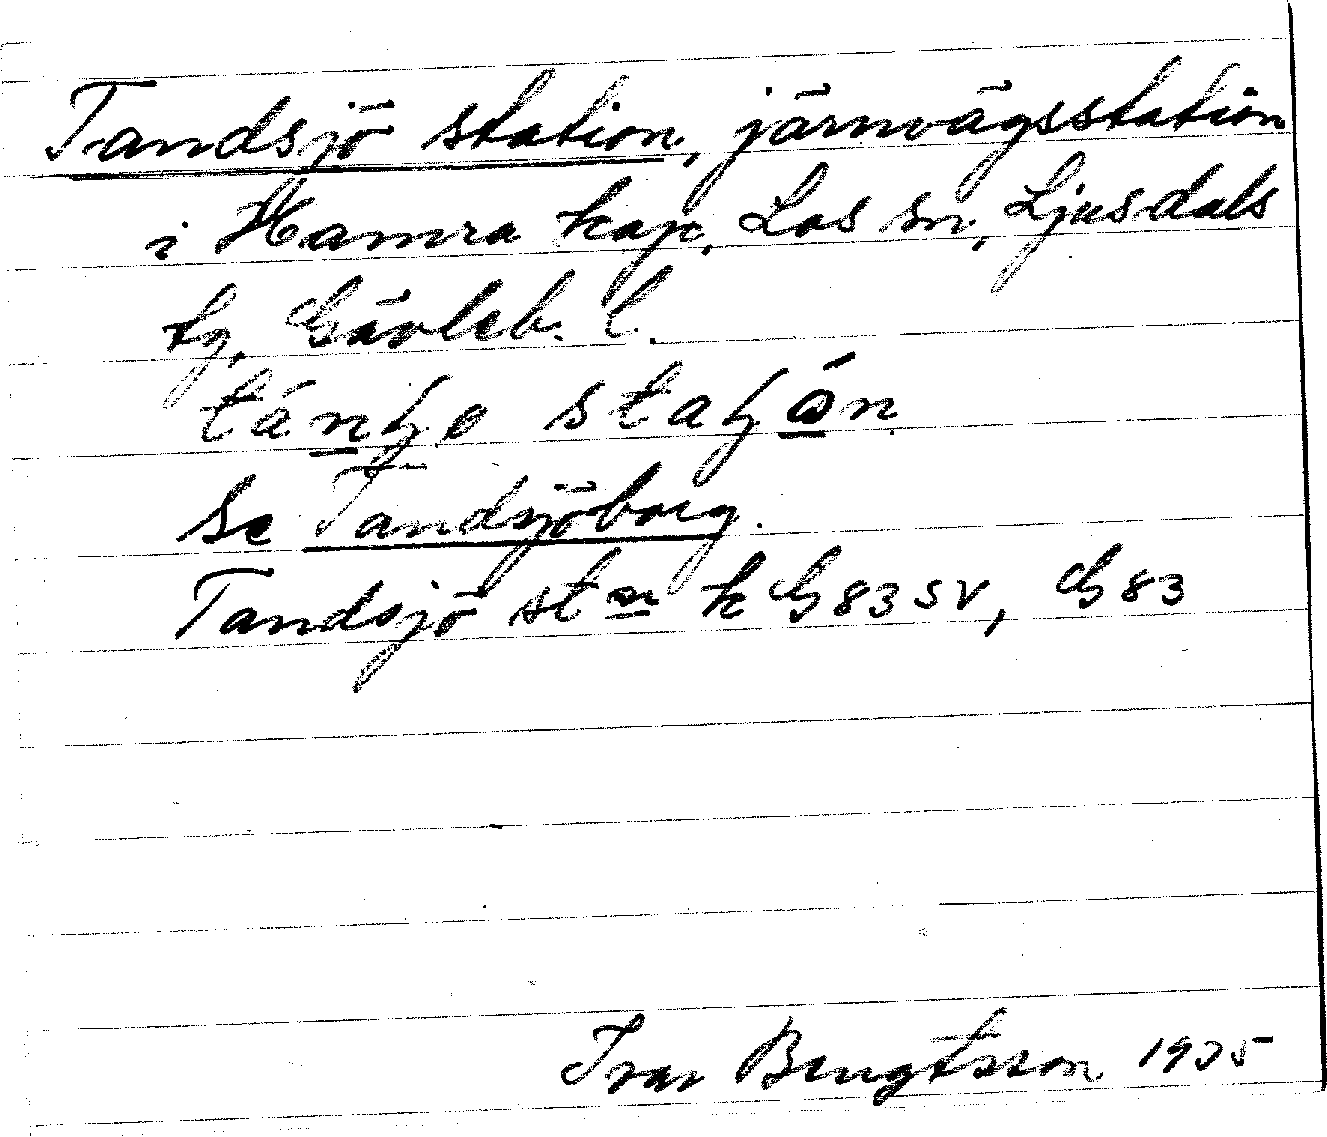 Tandsjö station, järnvägsstation
i Hamra kap, Los sn, Ljusdals
tg, Gävleb. l.
Se Tandsjöborg.
Tandsjö stn k G83SV, G83
Ivar Bengtsson 1935